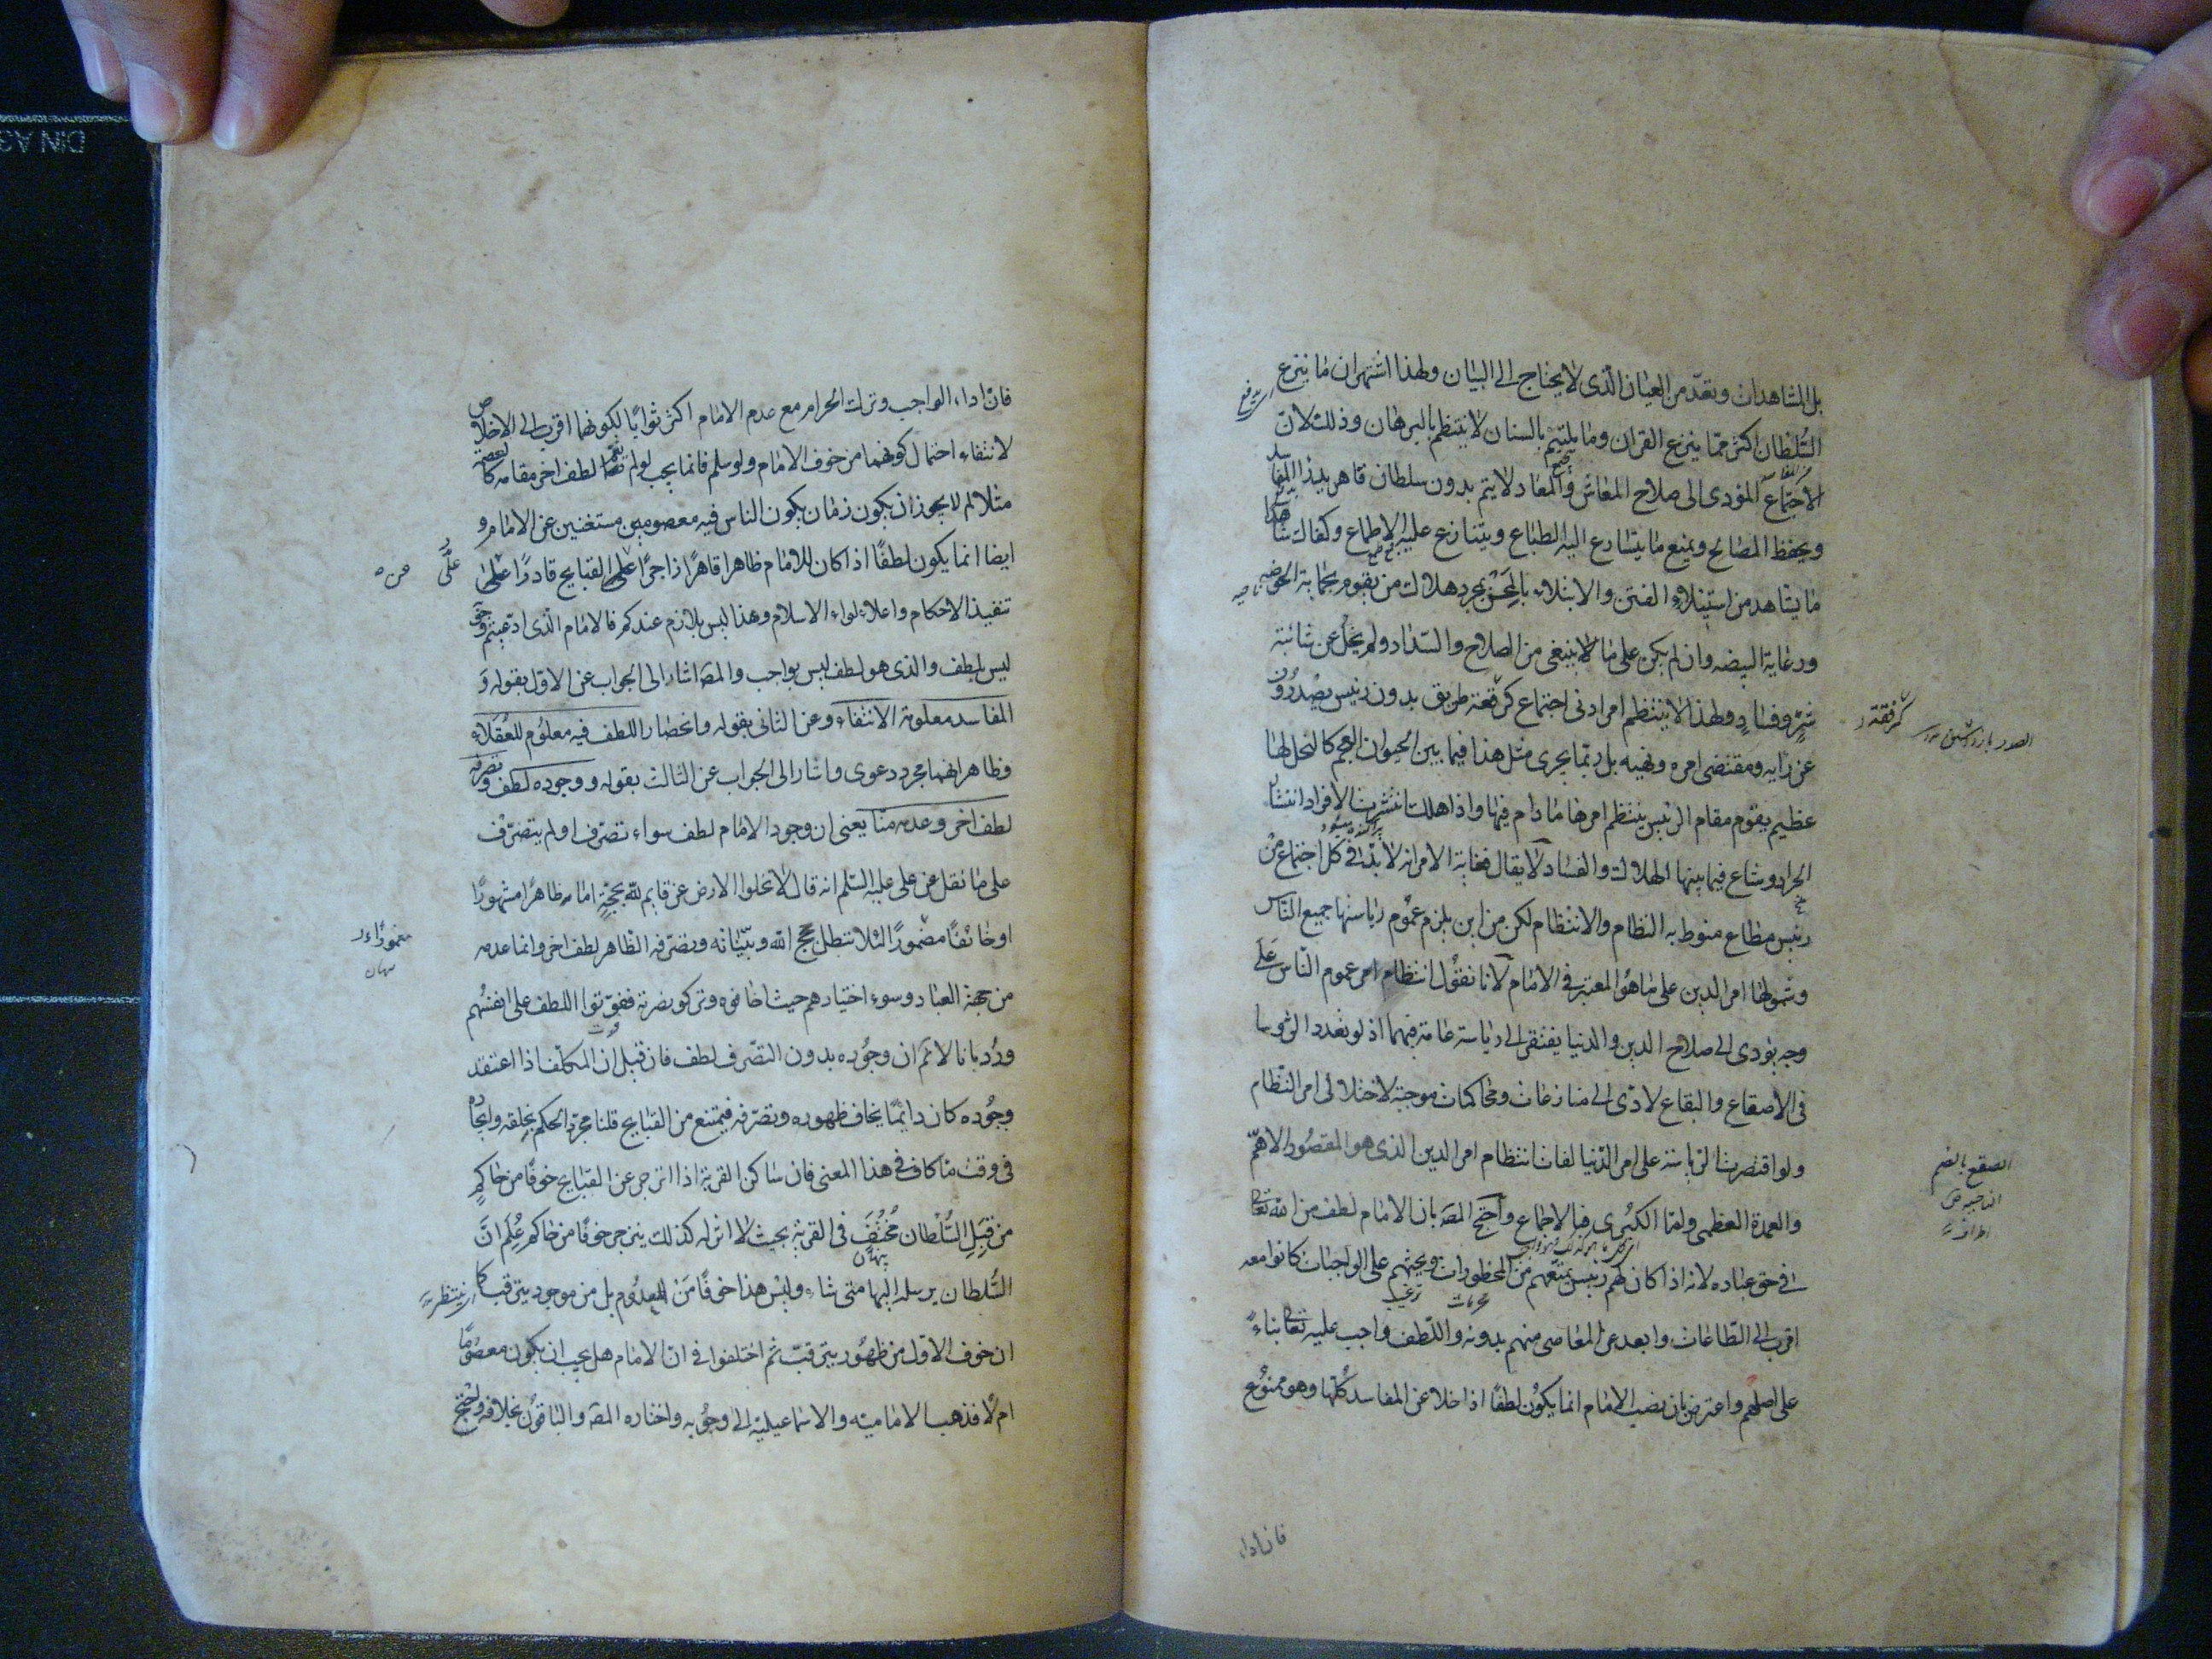 بل المشاهدات وتعدّ من العيان الّذى لا يحتاج الى البيان ولهذا اشتهر ان ما ينزع
السُّلطان اكثر ممّا ينزع القران وما يلتئم بالسنان لا ينتظم بالبرهان وذلك لانّ
الاجتماع المؤدى الى صلاح المعاش والمعاد لا يتم بدون سلطان قاهر يدرا المفاسد
ويحفظ المصالح ويمنع ما يتسارع اليه الطباع ويتنازع عليه الاطماع وكفاك شاهدا
ما يشاهد من استيلاء الفتن والابتلاء بالمحن بمجرد هلاك من يقوم بحماية الحوضة
ورعاية البيضه وان لم يكن على ما لا ينبغى من الصلاح والسّداد ولم يخل عن شائبة
شرّ وفساد ولهذا لا ينتظم امر ادنى اجتماع كرقعة طريق بدون رئيس يصدرون
عن رايه ومقتضى امره ونهيه بل ربّما يجرى مثل هذا فيما بين الحيوان العجم كالنحل لها
عظيم يقوم مقام الرئيس ينتظم امرها ما دام فيها واذا هلك انتشرت الافراد انتشار
الجراد وشاع فيما بينها الهلاك والفساد لا يقال فغاية الامر انه لا بدّ فى كل اجتماع من
رئيس مطاع منوط به النظام والانتظام لكن من اين يلزم عموم رياستها جميع النّاس
وشمولها امر الدين على ما هو المعتبر فى الامام لانا نقول انتظام امر عموم النّاس على
وجه يؤدى الى صلاح الدين والدنيا يفتقر الى رياسة عامة فيهما اذ لو تعدد الرؤسا
فى الاصقاع والبقاع لادّى الى منازعات ومخاكمات موجبة لاختلال امر النّظام
ولو اقتصرت الرّياسة على امر الدّنيا لفات انتظام امر الدين الذى هو المقصود الاهمّ
والعمدة العظمى ولمّا الكبرى فبالاجماع واحتج المصه بان الامام لطف من الله تعالى
فى حق عباده لانه اذا كان لهم رئيس يمنعهم من المحظورات ويحثهم على الواجبات كانوا معه
اقرب الى الطّاعات وابعد عن المعاصى منهم بدونه واللّطف واجب عليه تعالى بناءً
على اصلهم واعترض بان نصب الامام انما يكون لطفًا اذا خلا عن المفاسد كلّها وهو ممنوع
كرفقة
الصقع بالضم
الناحيه
فان اداء
فان اداء الواجب وترك الحرام مع عدم الامام اكثر ثوابًا لكونهما اقرب الى الاخلاص
لانتفاء احتمال كونهما من خوف الامام ولو سلم فانما يجب لو لم يقم لطف اخر مقامه كالعصمة
مثلا لم لا يجوز ان يكون زمان يكون الناس فيه معصومين مستغنين عن الامام و
ايضا انما يكون لطفًا اذا كان للامام ظاهرا قاهرًا زاجرًا على القبايح قادرًا على
تنفيذ الاحكام واعلاء لواء الاسلام وهذا ليس بلازم عندكم فالامام الّذى ادّعيتم وجوبه
ليس بلطف والذى هو لطف ليس بواجب والمصه اشار الى الجواب عن الاول بقوله و
المفاسد معلومة الانتفاء وعن الثانى بقوله وانحصار اللطف فيه معلوم للعقلاء
وظاهر انهما مجرد دعوى واشار الى الجواب عن الثالث بقوله ووجوده لطف وتصرفه
لطف اخر وعدمه منّا يعنى ان وجود الامام لطف سواء تصرّف او لم يتصرّف
على ما نقل عن على عليه السّلم انه قال لا تخلوا الارض عن قايم لله بحجّة اما ظاهرًا مشهورًا
او خائفًا مضمورًا لئلا تبطل حجج الله وبيّناته وتصرّفه الظاهر لطف اخر وانما عدمه
من جهة العباد وسوء اختيارهم حيث اخافوه وتركو نصرته ففوّتوا اللطف على انفسهم
ورُدّ بانا لا نمّ ان وجوده بدون التصرف لطف فان قيل ان المكلّف اذا اعتقد
وجوده كان دائمًا يخاف ظهوره وتصرّفه فيمتنع من القبايح قلنا مجرد الحكم بخلقه وايجاده
فى وقت ما كاف فى هذا المعنى فان ساكن القرية اذا انزجر عن القبايح خوفًا من حاكم
من قبل السُّلْطان مُختُفٍ فى القرية بحيث لا اثر له كذلك ينزجر خوفًا من حاكم عُلم انَّ
السُّلطان يرسله اليها متى شاء وليس هذا خوفًا من المعدوم بل من موجود يترقب كا
ان خوف الاوّل من ظهور يترقب ثم اختلفوا فى انّ الامام هل يجب ان يكون معصومًا
ام لا فذهب الامامية والاسماعيلية الى وجوبه واختاره المصه والباقون بخلافه واحتج
عن ه
مغمورًا
ينتظر
پنهان